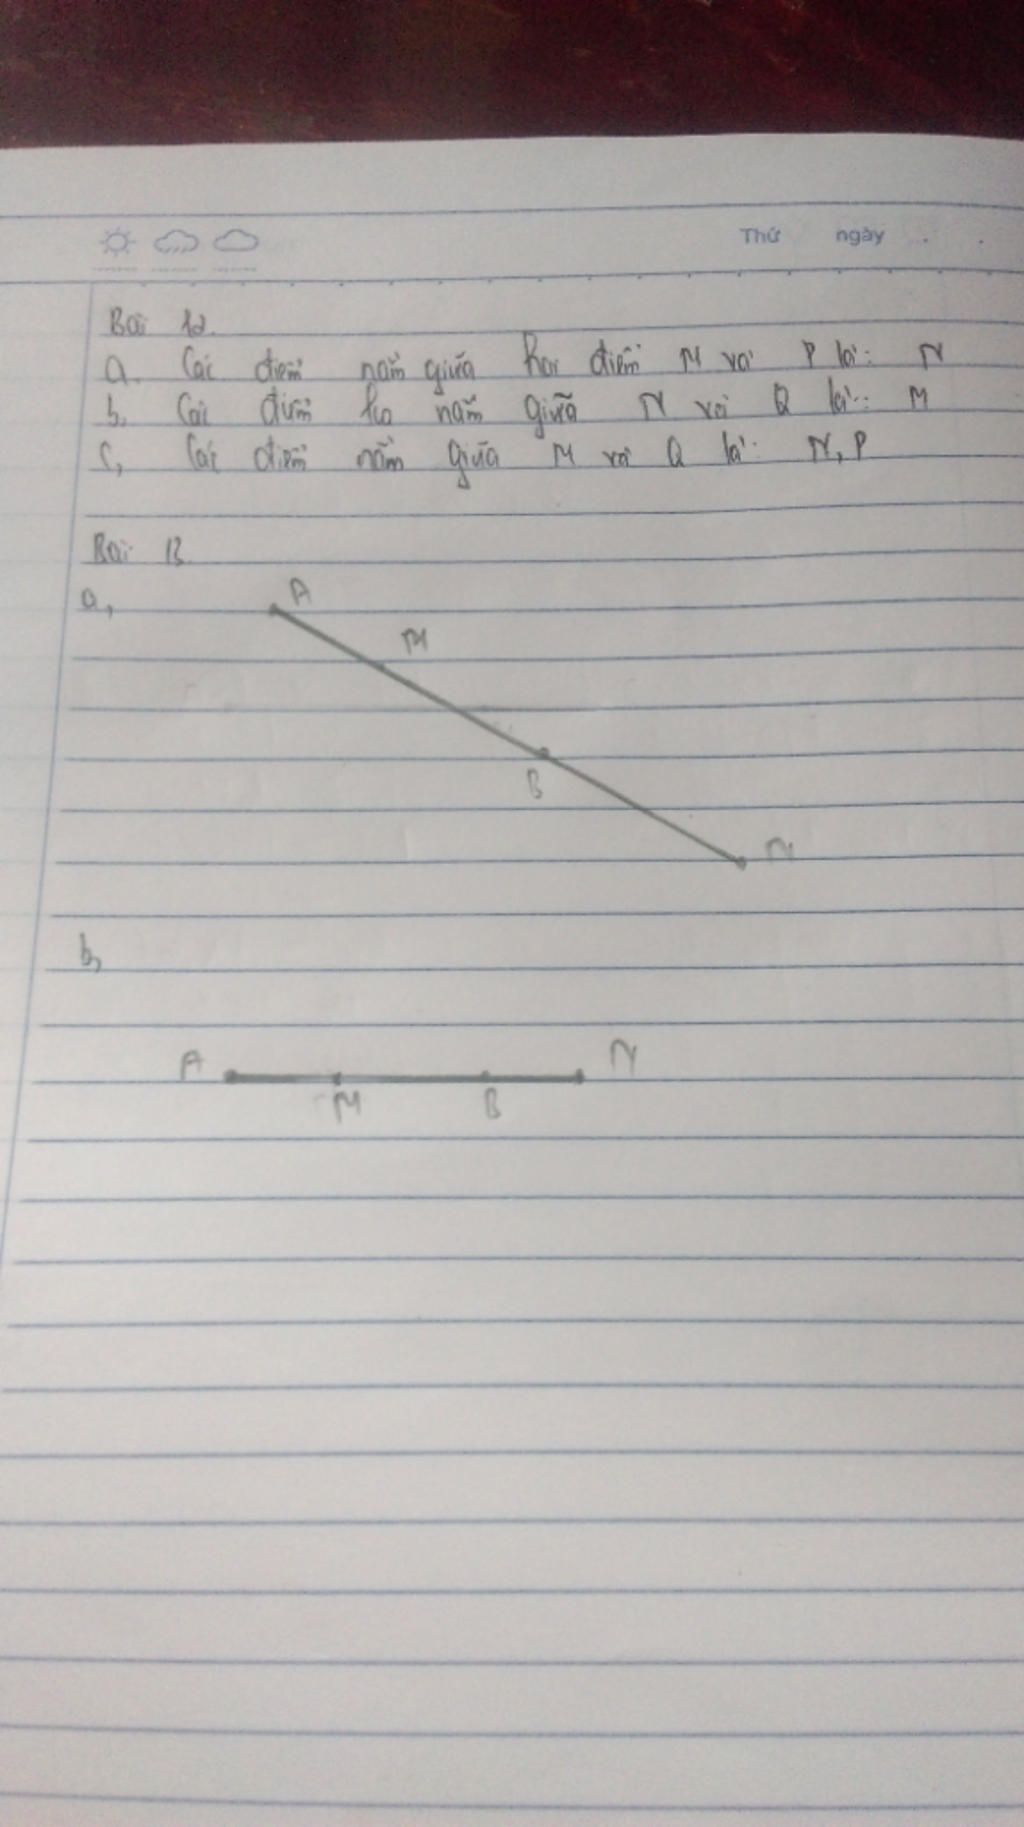 Thứ ngày
Bài 12.
a. Các điểm nằm giữa hai điểm M và P là: N
b, Các điểm ko nằm giữa N và Q là: M
c, Các điểm nằm giữa M và Q là: N, P
Bài 13.
a,
A
M
B
N
b,
A N
M B